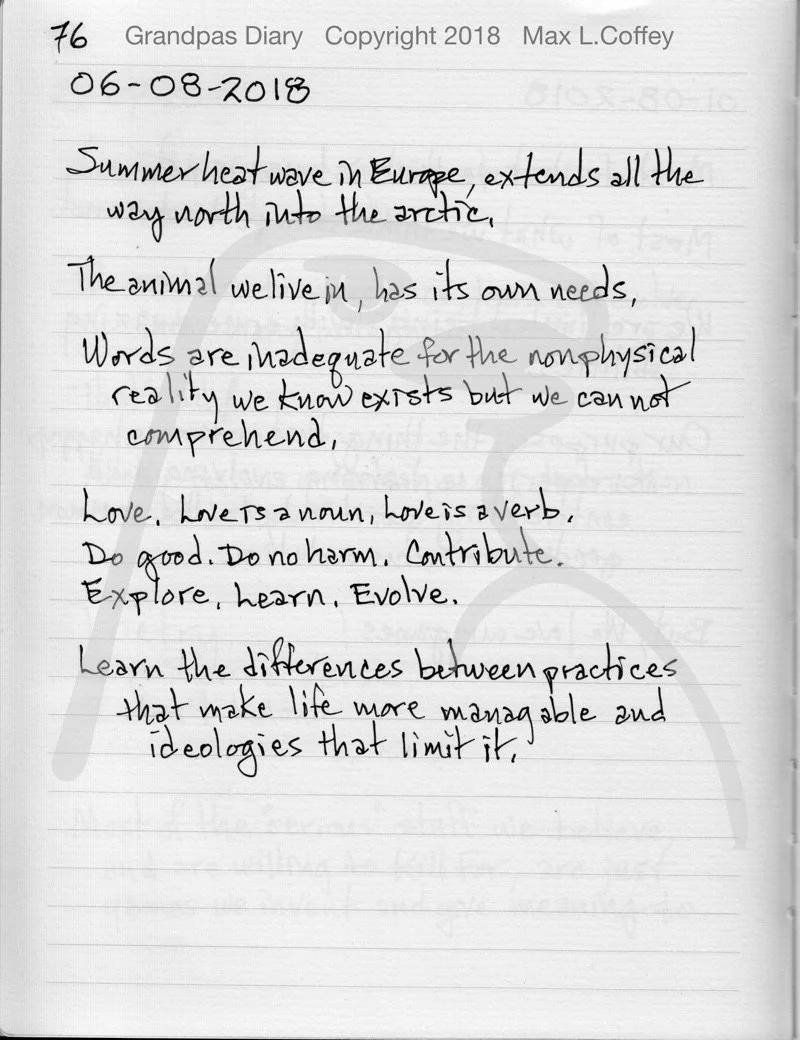 76 Grandpas Diary Copyright 2018 Max L.Coffey
06-08-2018
Summer heat wave in Europe, extends all the
way north into the arctic.
The animal we live in, has its own needs,
Words are inadequate for the nonphysical
reality we know exists but we can not
comprehend,
Love. Love is a noun, Love is a verb.
Do good. Do no harm. Contribute.
Explore. Learn. Evolve.
Learn the differences between practices
that make life more managable and
ideologies that limit it.